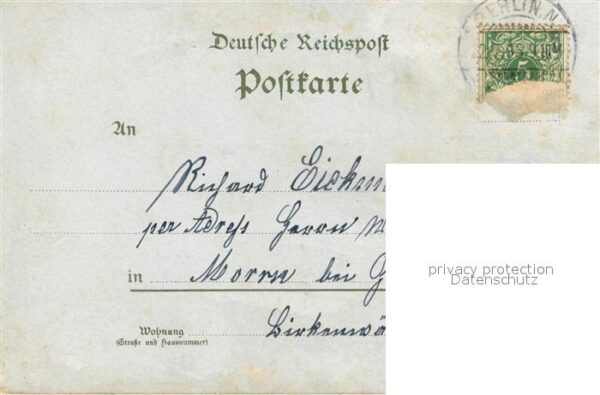 BERLIN.N.
Deutsche Reichspost
Postkarte
5
An
Richard Eickm
per Adress Herrn M
in Morrn bei G
Wohnung Birkenwä
(Straße und Hausnummer)
privacy protection
Datenschutz